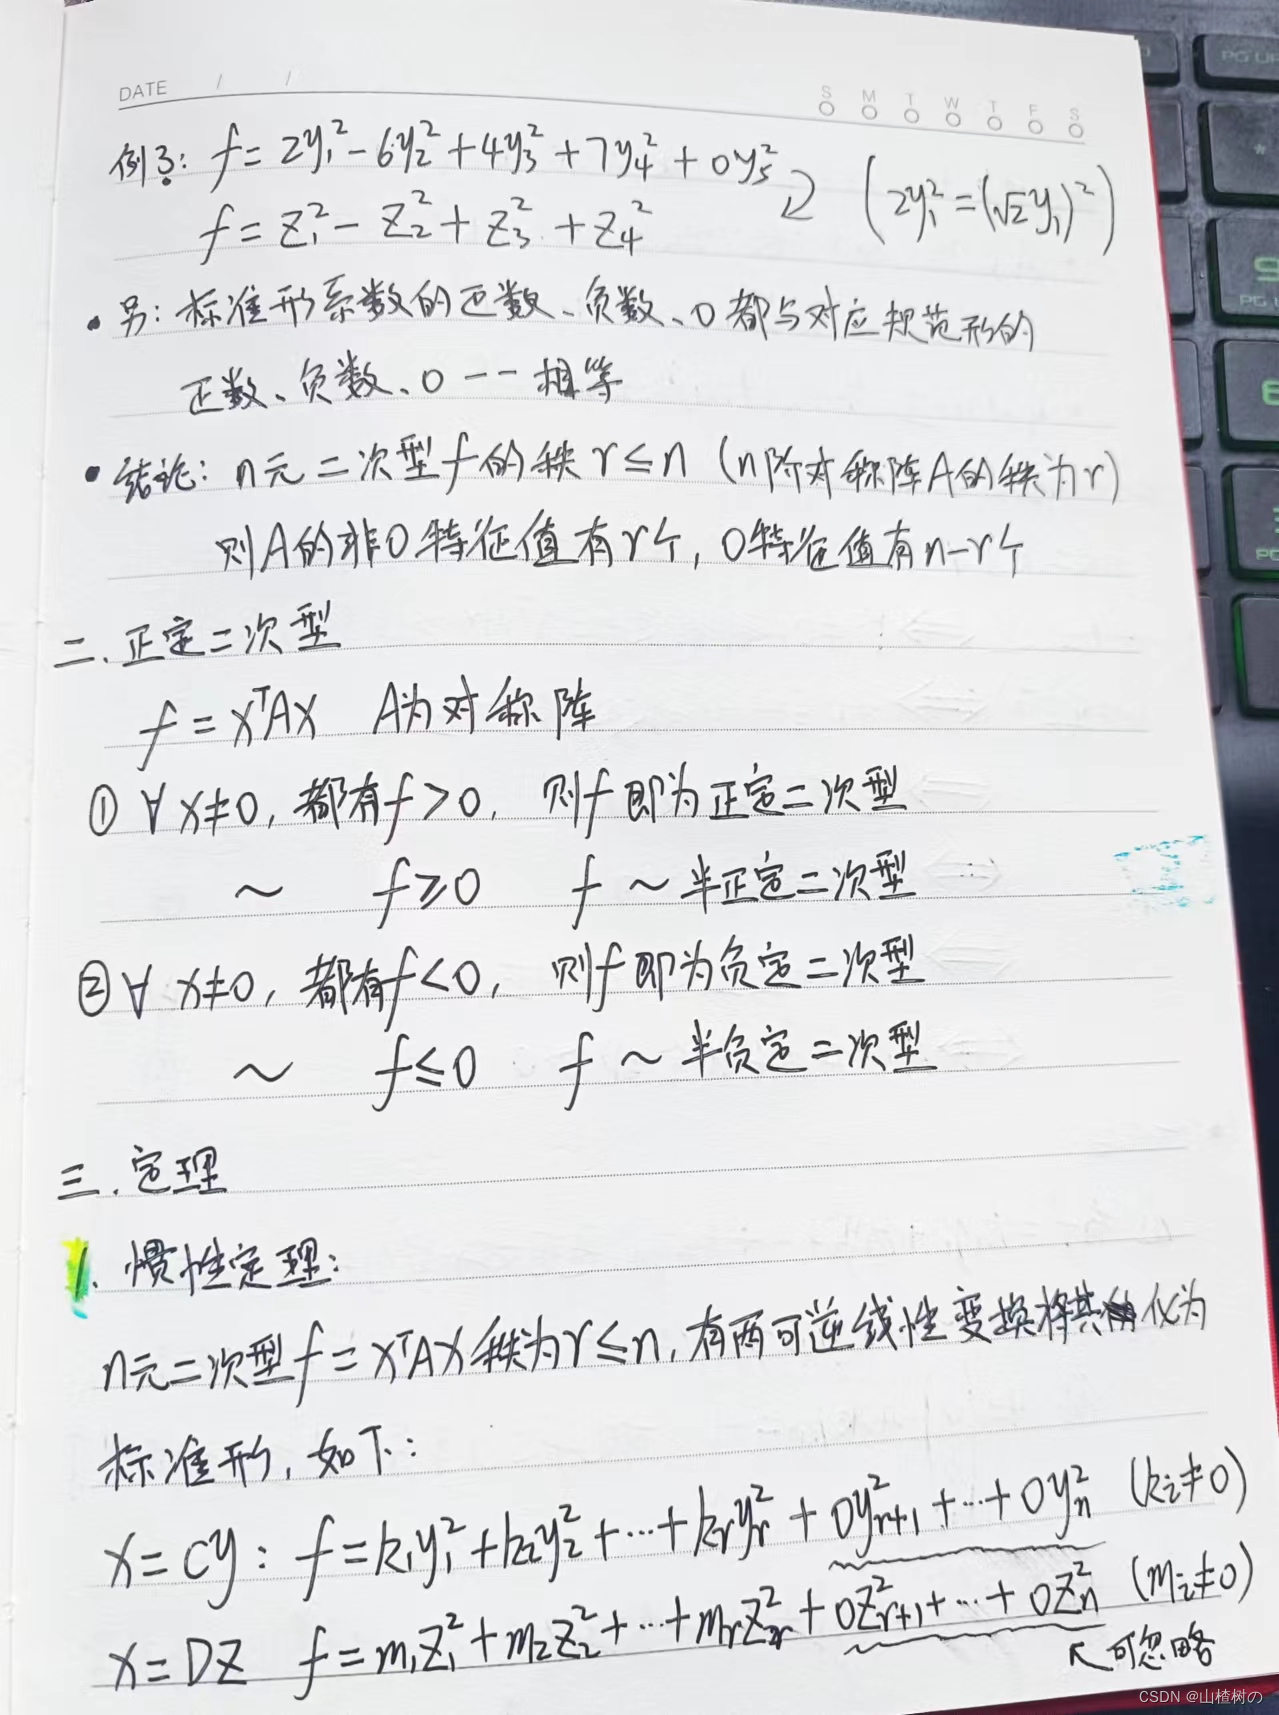 DATE / /
S M T W T F S
例3: f=2y₁²-6y₂²+4y₃²+7y₄²+0y₅² (2y₁²=(√2y₁)²)
f=z₁²-z₂²+z₃²+z₄²
• 另: 标准形系数的正数、负数、0都与对应规范形的
正数、负数、0一一相等
• 结论: n元二次型f的秩r≤n (n阶对称阵A的秩为r)
则A的非0特征值有r个, 0特征值有n-r个
二. 正定二次型
f=xᵀAx A为对称阵
① ∀x≠0, 都有f>0, 则f即为正定二次型
~ f≥0 f ~ 半正定二次型
② ∀x≠0, 都有f<0, 则f即为负定二次型
~ f≤0 f ~ 半负定二次型
三. 定理
1. 惯性定理:
n元二次型f=xᵀAx秩为r≤n, 有两可逆线性变换将其化为
标准形, 如下:
x=Cy: f=k₁y₁²+k₂y₂²+…+kᵣyᵣ²+0yᵣ₊₁²+…+0yₙ² (kᵢ≠0)
x=Dz f=m₁z₁²+m₂z₂²+…+mᵣzᵣ²+0zᵣ₊₁²+…+0zₙ² (mᵢ≠0)
↖可忽略
PG UP
*
9
PG U
6
CSDN @山楂树の